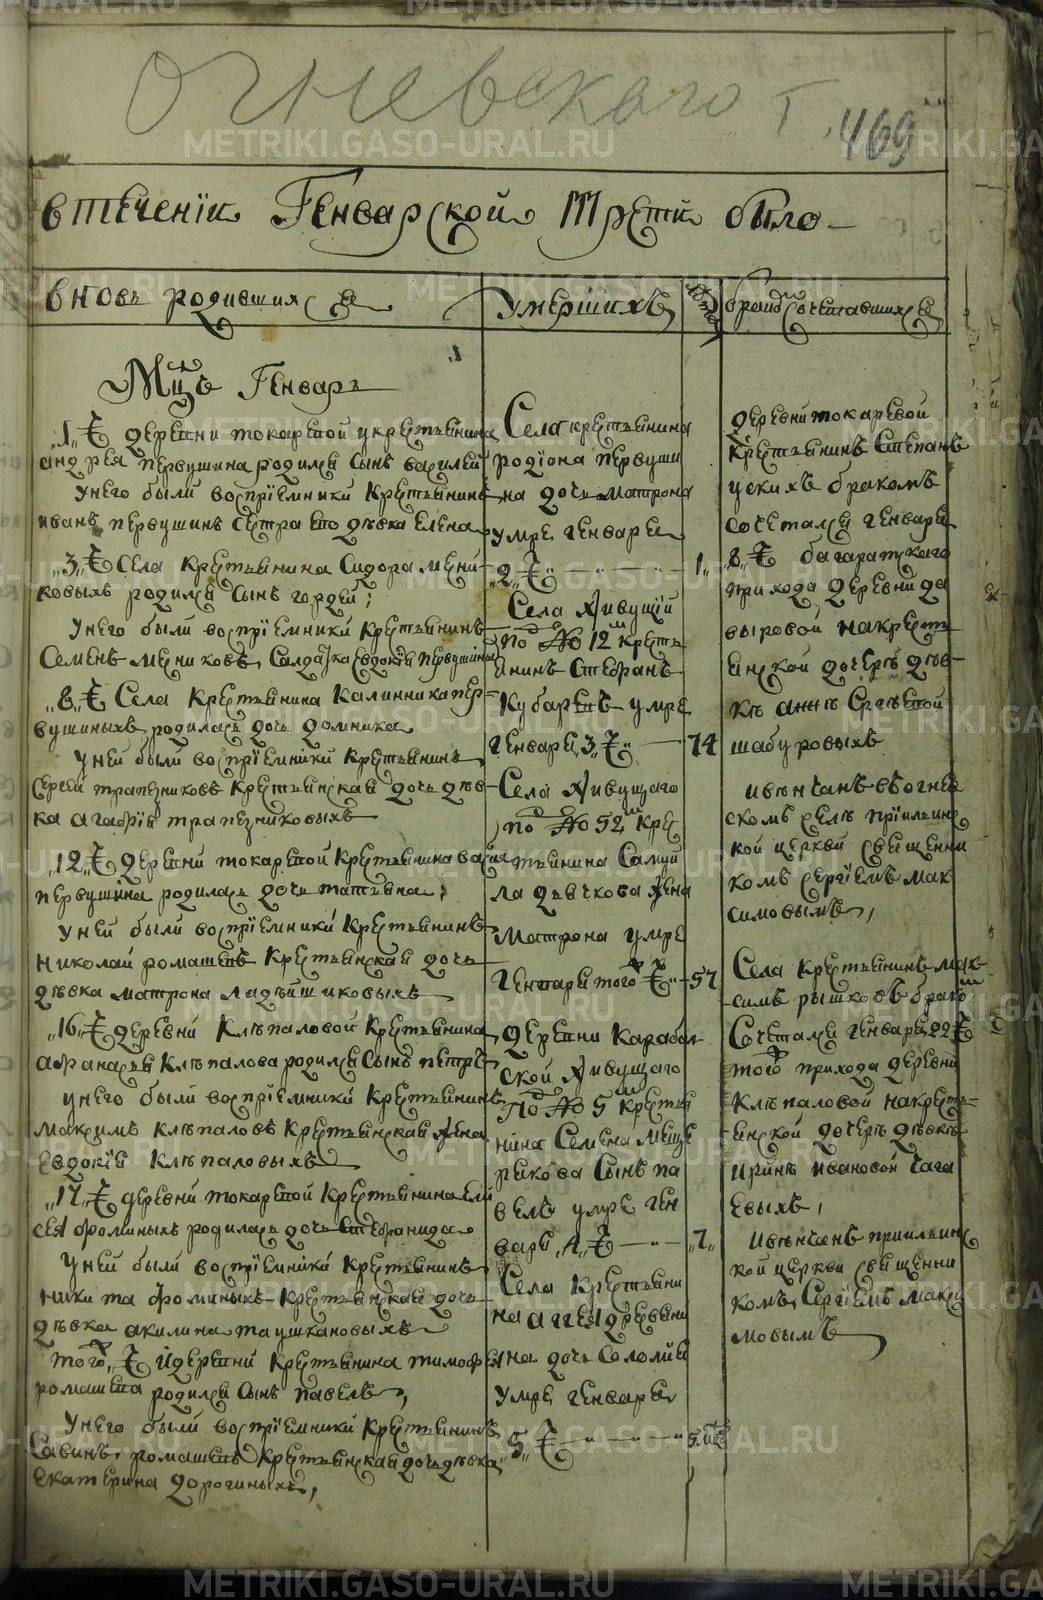 Огневского
469
втеченїи Генварской трети было
вновь родившихся
умершихъ
лета
бракомъ сочетавшихся
Мцъ Генварь
„1„ Ч деревни токаревой у крестьянина
андрея первушина родился сынъ василей
у него были воспрїемники крестьянинъ
иванъ первушинъ сестра его дѣвка елена
„3„ Ч села крестьянина Сидора мерни
ковыхъ родился сынъ гордей;
у него были воспрїемники крестьянинъ
семенъ мерниковъ, салдатка евдокїя первушины
„8„ Ч Села крестьянина калинника пер
вушиныхъ родилась дочь домника
у ней были воспрїемники крестьянинъ
сергей трапезниковъ крестьянская дочь дѣв
ка агафїя трапезниковыхъ
„12„ Ч деревни токаревой крестьянина васил
первушина родилась дочь татьяна;
у ней были воспрїемники крестьянинъ
николай ромашевъ крестьянская дочь
дѣвка матрона ладѣйщиковыхъ
„16„ Ч деревни клѣпаловой крестьянина
афанасья клѣпалова родился сынъ петръ
у него были воспрїемники крестьянинъ
максимъ клѣпаловъ крестьянская жена
евдокїя клѣпаловыхъ
„17„ Ч деревни токаревой крестьянина ели
сея фоминыхъ родилась дочь стефанида
у ней были воспрїемники крестьянинъ
никита фоминыхъ крестьянская дочь
дѣвка акилина таушкановыхъ
того Ч и деревни крестьянина тимофея
ромашева родился сынъ павелъ,
у него были воспрїемники крестьянинъ
савинъ ромашевъ крестьянская дочь дѣвка
екатерина дорогиныхъ,
Села крестьянина
родїона первуши
на дочь матрона
умре генваря
„2„ Ч 1„
Села живущїй
по № 12м крестья
нинъ стефанъ
кубаревъ умре
генваря „3„ Ч 74
Села живущаго
по № 52м кре
стьянина Самуй
ла дьячкова жена
матрона умре
Генваря того Ч 57
деревни карабол
ской живущаго
по № 5м крестья
нина Семена меще
рякова сынъ па
велъ умре ген
варя „4„ Ч „7„
Села крестьяни
на аггея деревяни
на дочь соломия
умре генваря
„5„ Ч 5
деревни токаревой
крестьянинъ стефанъ
бракомъ
сочетался генваря
„8„ Ч багаратскаго
прихода деревни да
выровой на кресть
янской дочерѣ дѣв
кѣ аннѣ сергѣевой
шабуровыхъ
и вѣнчанъ въ огнев
скомъ селѣ при ильинс
кой церкви священни
комъ сергїемъ мак
симовымъ,
Села крестьянинъ мак
симъ рышковъ бракомъ
сочетался генваря 22 Ч
того прихода деревни
клѣпаловой на кресть
янской дочерѣ дѣвкѣ
иринѣ ивановой чага
евыхъ,
и вѣнчанъ при ильинс
кой церкви священни
комъ Сергїемъ макси
мовымъ
METRIKI.GASO-URAL.RU